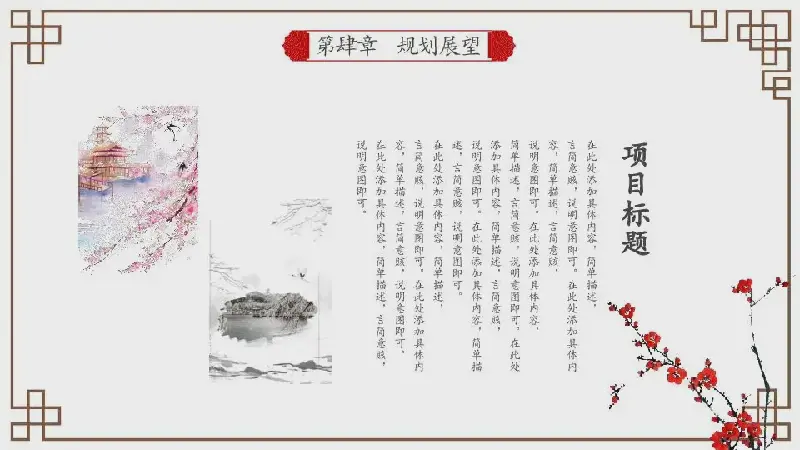 第肆章　规划展望
项目标题
在此处添加具体内容，简单描述，
言简意赅，说明意图即可。在此处添加具体内
容，简单描述，言简意赅，
说明意图即可。在此处添加具体内容，
简单描述，言简意赅，说明意图即可。在此处
添加具体内容，简单描述，言简意赅，
说明意图即可。在此处添加具体内容，简单描
述，言简意赅，说明意图即可。
在此处添加具体内容，简单描述，
言简意赅，说明意图即可。在此处添加具体内
容，简单描述，言简意赅，说明意图即可。
在此处添加具体内容，简单描述，言简意赅，
说明意图即可。